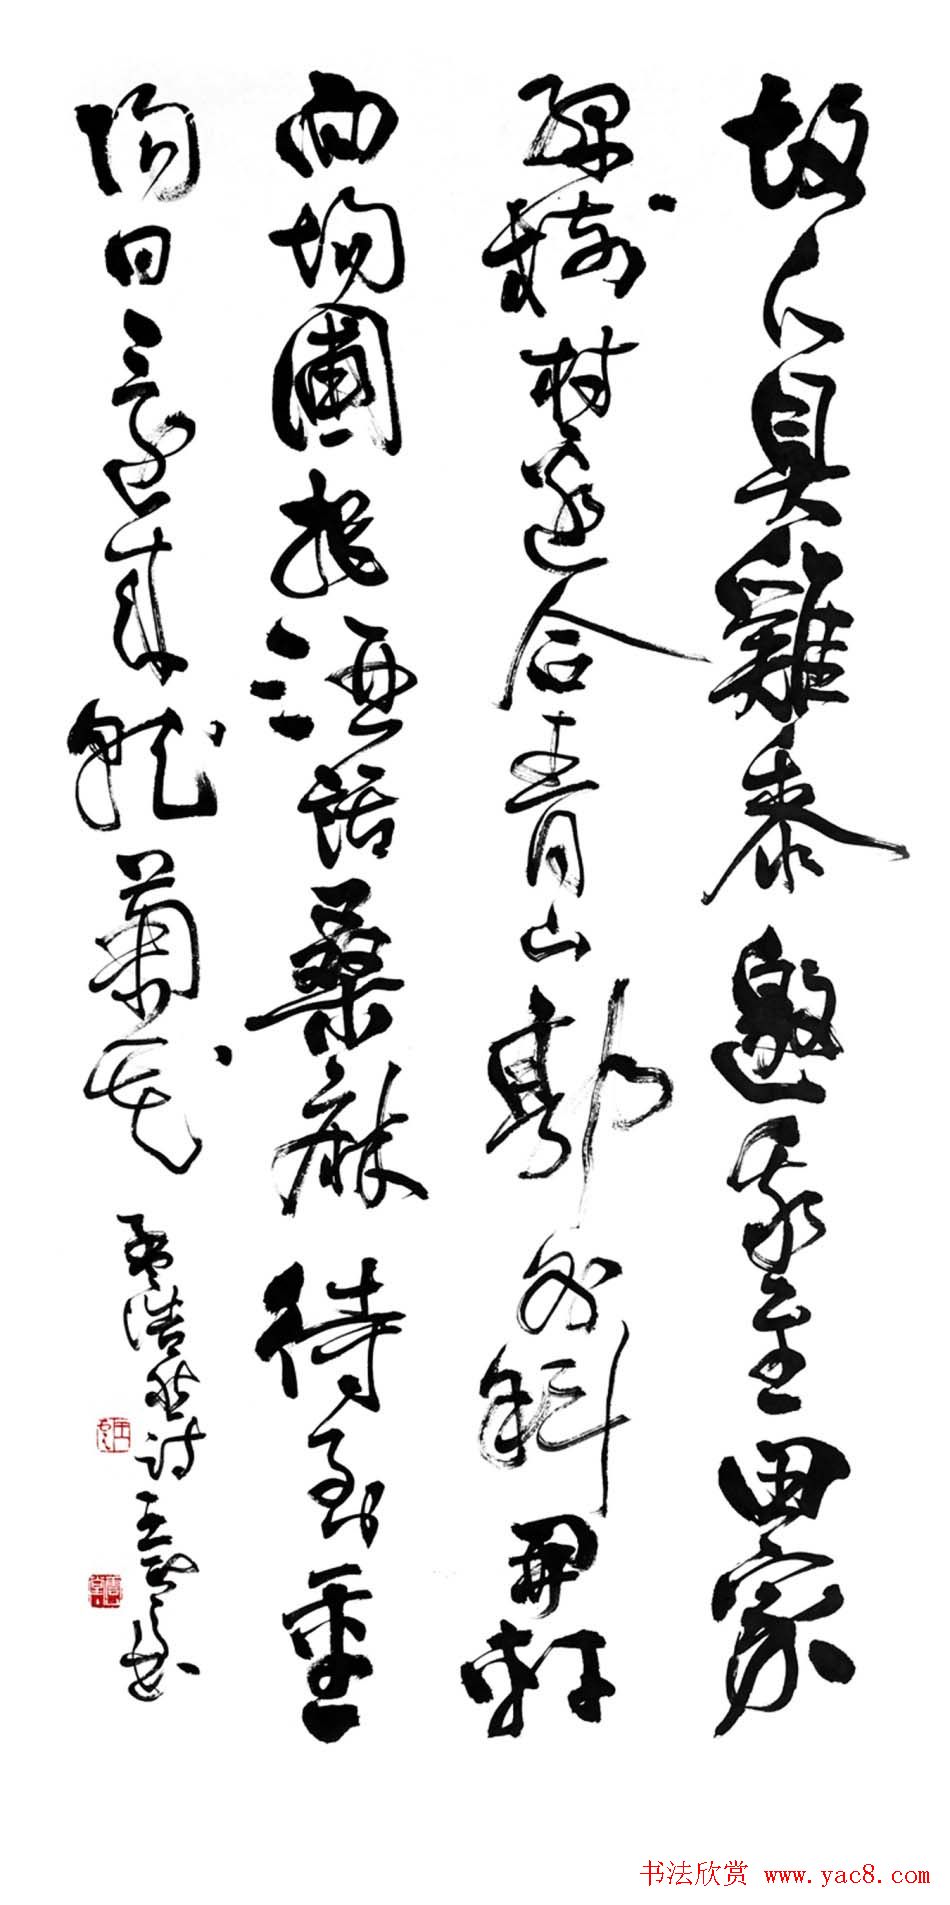 故人具雞黍邀我至田家
綠樹村邊合青山郭外斜開軒
面場圃把酒話桑麻待到重
陽日還來就菊花
孟浩然詩 王
书法欣赏 www.yac8.com